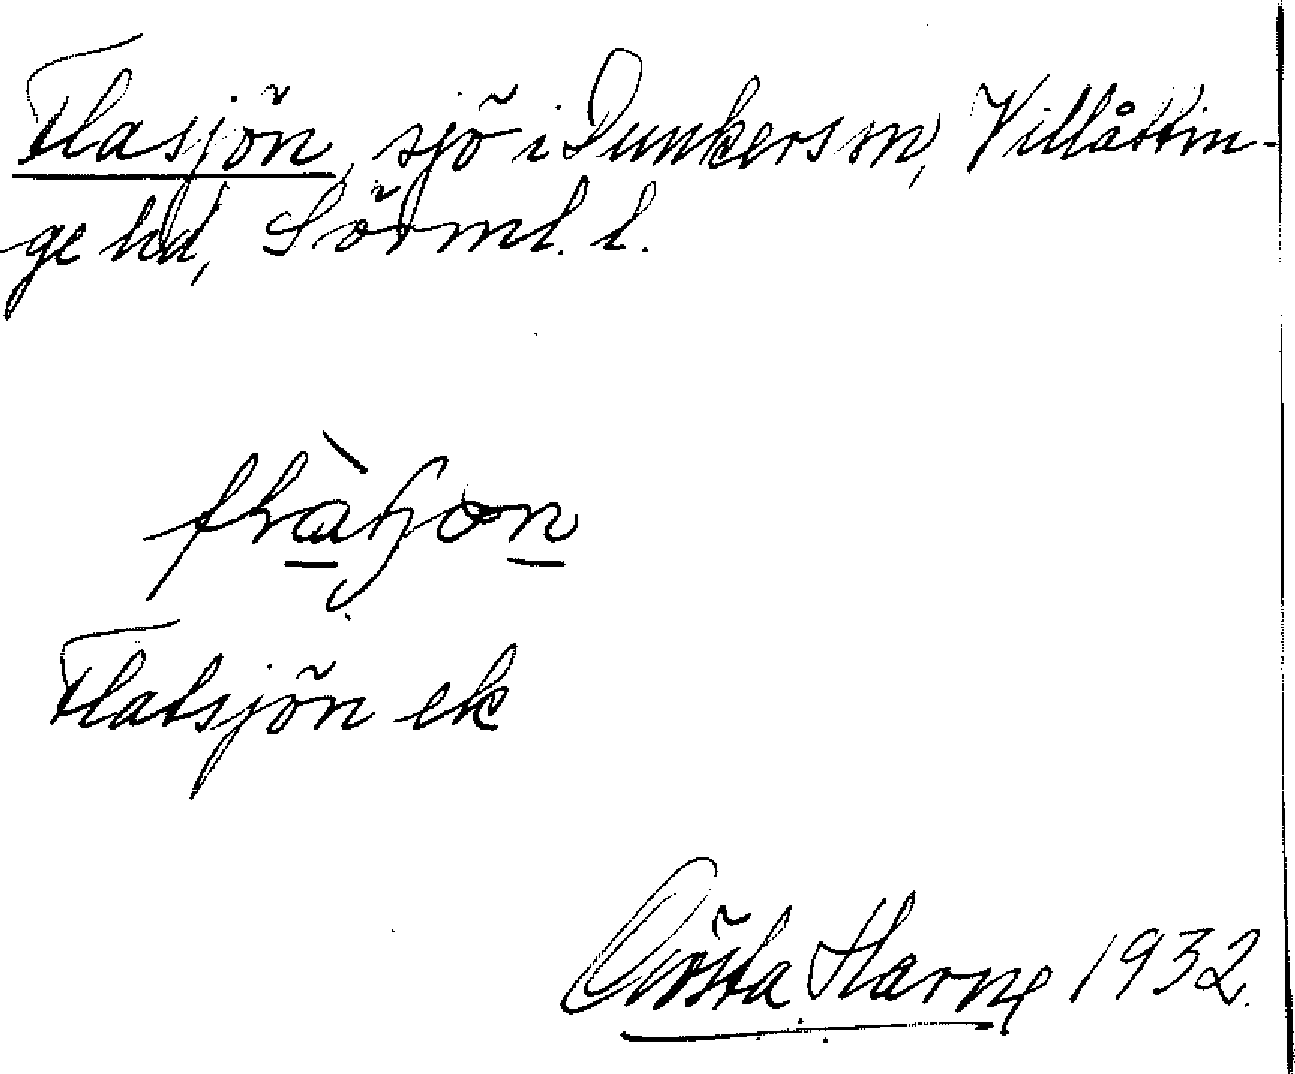 Flasjön, sjö i Dunkers sn, Villåttin-
ge hd, Sörml. l.
Flatsjön ek
Gösta Harne 1932.